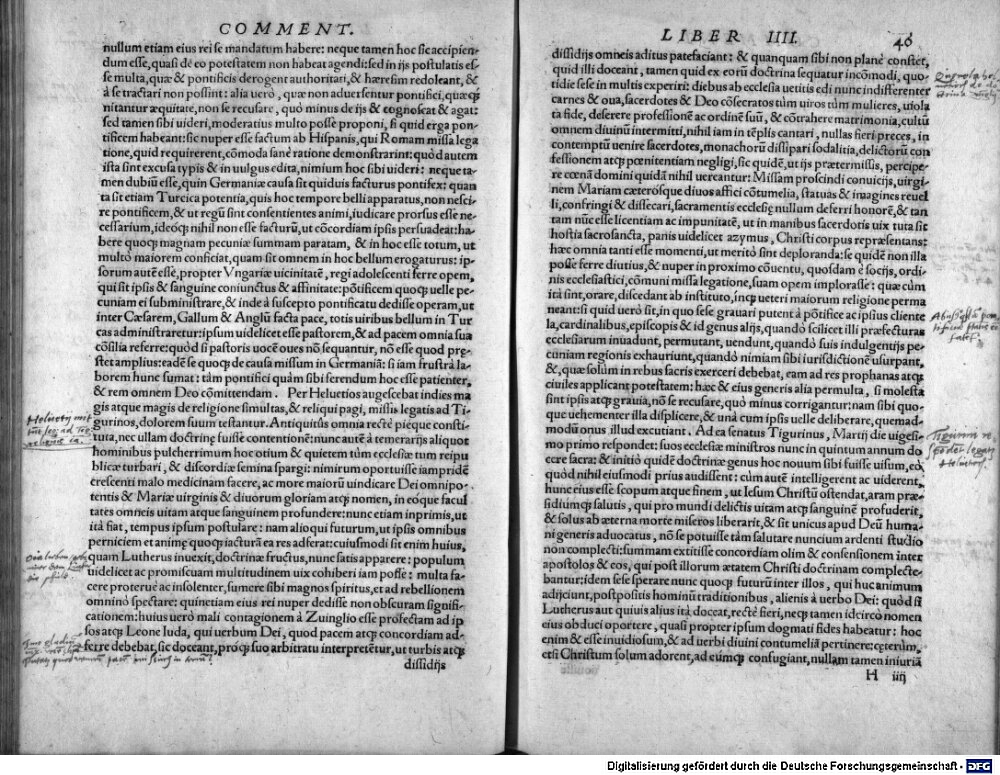 COMMENT.
nullum etiam eius rei se mandatum habere: neque tamen hoc sic accipien-
dum esse, quasi de eo potestatem non habeat agendi: sed in ijs postulatis es-
se multa, quæ & pontificis derogent authoritati, & hæresim redoleant, &
à se tractari non possint: alia uerò, quæ non aduersentur pontifici, quæq́;
nitantur æquitate, non se recusare, quò minus de ijs & cognoscat & agat:
sed tamen sibi uideri, moderatius multo posse proponi, si quid erga pon-
tificem habeant: sic nuper esse factum ab Hispanis, qui Romam missa lega
tione, quid requirerent, cōmoda sanè ratione demonstrarint: quòd autem
ista sint excusa typis & in uulgus edita, nimium hoc sibi uideri: neque ta-
men dubiū esse, quin Germaniæ causa sit quiduis facturus pontifex: quan
ta sit etiam Turcica potentia, quis hoc tempore belli apparatus, non nesci-
re pontificem, & ut regū sint consentientes animi, iudicare prorsus esse ne-
cessarium, ideoq́; nihil non esse facturū, ut cōcordiam ipsis persuadeat: ha-
bere quoq; magnam pecuniæ summam paratam, & in hoc esse totum, ut
multò maiorem conficiat, quam sit omnem in hoc bellum erogaturus: ip-
sorum autē esse, propter Vngariæ uicinitatē, regi adolescenti ferre opem,
qui sit ipsis & sanguine coniunctus & affinitate: pōtificem quoq; uelle pe-
cuniam ei subministrare, & inde à suscepto pontificatu dedisse operam, ut
inter Cæsarem, Gallum & Anglū facta pace, totis uiribus bellum in Tur
cas administraretur: ipsum uidelicet esse pastorem, & ad pacem omnia sua
cōsilia referre: quòd si pastoris uocē oues nō sequantur, nō esse quod præ-
stet amplius: eadē se quoq; de causa missum in Germaniā: si iam frustrà la-
borem hunc sumat: tàm pontifici quàm sibi ferendum hoc esse patienter,
& rem omnem Deo cōmittendam. Per Heluetios augescebat indies ma
gis atque magis de religione simultas, & reliqui pagi, missis legatis ad Ti-
gurinos, dolorem suum testantur. Antiquitùs omnia rectè pieq́ue consti-
tuta, nec ullam doctrinę fuisse contentionē: nunc autē à temerarijs aliquot
hominibus pulcherrimum hoc otium & quietem tùm ecclesiæ tum reipu
blicæ turbari, & discordiæ semina spargi: nimirum oportuisse iampridē
crescenti malo medicinam facere, ac more maiorū uindicare Dei omnipo-
tentis & Mariæ uirginis & diuorum gloriam atq; nomen, in eóque facul
tates omneis uitam atque sanguinem profundere: nunc etiam inprimis, ut
ità fiat, tempus ipsum postulare: nam alioqui futurum, ut ipsis omnibus
perniciem et animę quoq; iacturā ea res adferat: cuiusmodi sit enim huius,
quam Lutherus inuexit, doctrinæ fructus, nunc satis apparere: populum
uidelicet ac promiscuam multitudinem uix cohiberi iam posse: multa fa-
cere proteruè ac insolenter, sumere sibi magnos spiritus, et ad rebellionem
omninò spectare: quinetiam eius rei nuper dedisse non obscuram signifi-
cationem: huius uerò mali contagionem à Zuinglio esse profectam ad ip
sos atq; Leone Iuda, qui uerbum Dei, quod pacem atq; concordiam ad-
ferre debebat, sic doceant, próq; suo arbitratu interpretētur, ut turbis atq;
dissidijs
LIBER IIII.
46
dissidijs omneis aditus patefaciant: & quanquam sibi non planè constet,
quid illi doceant, tamen quid ex eorū doctrina sequatur incōmodi, quo-
tidie sese in multis experiri: diebus ab ecclesia uetitis edi nunc indifferenter
carnes & oua, sacerdotes & Deo cōsecratos tùm uiros tùm mulieres, uiola
ta fide, deserere professionē ac ordinē suū, & cōtrahere matrimonia, cultū
omnem diuinū intermitti, nihil iam in tēplis cantari, nullas fieri preces, in
contemptū uenire sacerdotes, monachorū dissipari sodalitia, delictorū con
fessionem atq; pœnitentiam negligi, sic quidē, ut ijs prætermissis, percipe-
re cœnā domini quidā nihil uereantur: Missam proscindi conuicijs, uirgi-
nem Mariam cæterosque diuos affici cōtumelia, statuas & imagines reuel
li, confringi & dissecari, sacramentis ecclesię nullum deferri honorē, & tan
tam nūc esse licentiam ac impunitatē, ut in manibus sacerdotis uix tuta sit
hostia sacrosancta, panis uidelicet azymus, Christi corpus repræsentans:
hæc omnia tanti esse momenti, ut meritò sint deploranda: se quidē non illa
posse ferre diutius, & nuper in proximo cōuentu, quosdam è socijs, ordi-
nis ecclesiastici, cōmuni missa legatione, suam opem implorasse: quæ cùm
ità sint, orare, discedant ab instituto, inq́; ueteri maiorum religione perma
neant: si quid uerò sit, in quo sese grauari putent à pōtifice ac ipsius cliente
la, cardinalibus, episcopis & id genus alijs, quandò scilicet illi præfecturas
ecclesiarum inuadunt, permutant, uendunt, quandò suis indulgentijs pe-
cuniam regionis exhauriunt, quandò nimiam sibi iurisdictionē usurpant,
&, quæ solùm in rebus sacris exerceri debebat, eam ad res prophanas atq;
ciuiles applicant potestatem: hæc & eius generis alia permulta, si molesta
sint ipsis atq; grauia, nō se recusare, quò minus corrigantur: nam sibi quo-
que uehementer illa displicere, & unà cum ipsis uelle deliberare, quemad-
modū onus illud excutiant. Ad ea senatus Tigurinus, Martij die uigesi-
mo primo respondet: suos ecclesiæ ministros nunc in quintum annum do
cere sacra: & initiò quidē doctrinæ genus hoc nouum sibi fuisse uisum, eò
quòd nihil eiusmodi prius audissent: cùm autē intelligerent ac uiderent,
hunc eius esse scopum atque finem, ut Iesum Christū ostendat, aram præ-
sidiumq́; salutis, qui pro mundi delictis uitam atq; sanguinē profuderit,
& solus ab æterna morte miseros liberarit, & sit unicus apud Deū huma-
ni generis aduocatus, nō se potuisse tàm salutare nuncium ardenti studio
non complecti: summam extitisse concordiam olim & consensionem inter
apostolos & eos, qui post illorum ætatem Christi doctrinam complecte-
bantur: idem sese sperare nunc quoq; futurū inter illos, qui huc animum
adijciunt, postpositis hominū traditionibus, alienis à uerbo Dei: quòd si
Lutherus aut quiuis alius ità doceat, rectè fieri, neq; tamen idcircò nomen
eius obduci oportere, quasi propter ipsum dogmati fides habeatur: hoc
enim & esse inuidiosum, & ad uerbi diuini contumeliā pertinere: cęterùm,
etsi Christum solum adorent, ad eúmq; confugiant, nullam tamen iniuriā
H iiij
Digitalisierung gefördert durch die Deutsche Forschungsgemeinschaft - DFG